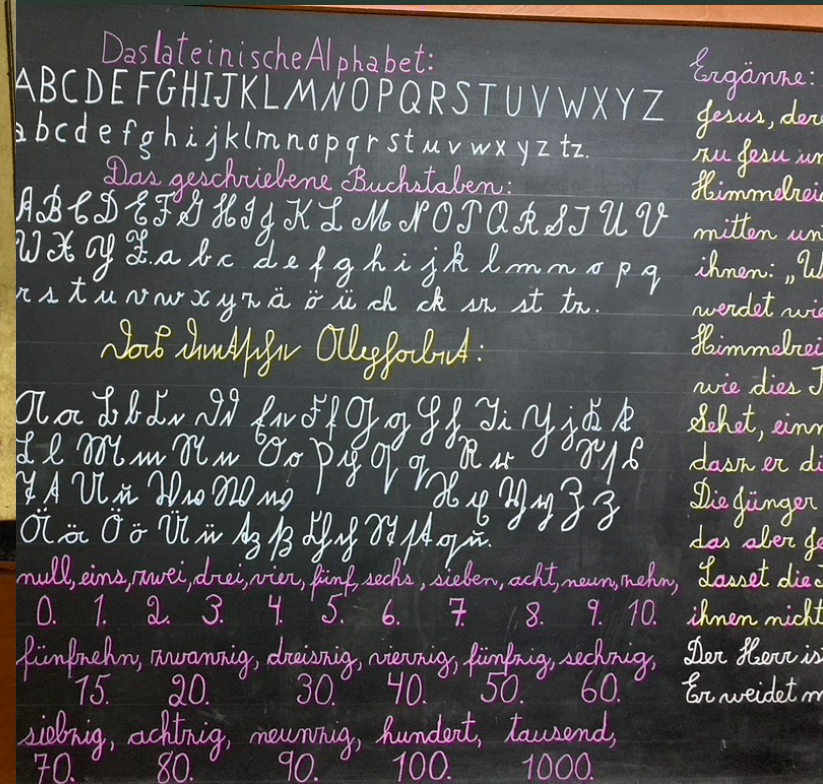 Das lateinische Alphabet:
A B C D E F G H I J K L M N O P Q R S T U V W X Y Z
a b c d e f g h i j k l m n o p q r s t u v w x y z tz.
Das geschriebene Buchstaben:
A B C D E F G H I J K L M N O P Q R S T U V
W X Y Z. a b c d e f g h i j k l m n o p q
r s t u v w x y z ä ö ü ch ck sz st tz.
Das deutsche Alphabet:
A a B b C c D d E e F f G g H h I i J j K k
L l M m N n O o P p Q q R r S s s
T t U u V v W w X x Y y Z z
Ä ä Ö ö Ü ü tz ß Ch ch St st qu.
null, eins, zwei, drei, vier, fünf, sechs, sieben, acht, neun, zehn,
0. 1. 2. 3. 4. 5. 6. 7. 8. 9. 10.
fünfzehn, zwanzig, dreiszig, vierzig, fünfzig, sechzig,
15. 20. 30. 40. 50. 60.
siebzig, achtzig, neunzig, hundert, tausend,
70. 80. 90. 100. 1000.
Ergänze:
Jesus, der
zu Jesu un
Himmelreic
mitten un
ihnen: „W
werdet wie
Himmelrei
wie dies
Sehet, einn
dasz er di
Die Jünger
das aber Je
Lasset die
ihnen nicht
Der Herr is
Er weidet m